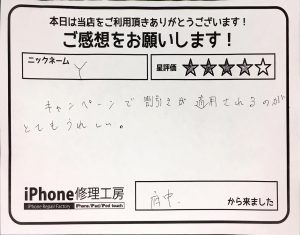 本日は当店をご利用頂きありがとうございます!
ご感想をお願いします!
ニックネーム Y
星評価 ★★★★☆
キャンペーンで割引きが適用されるのが
とてもうれしい。
iPhone修理工房
iPhone Repair Factory iPhone/iPad/iPod touch
府中 から来ました